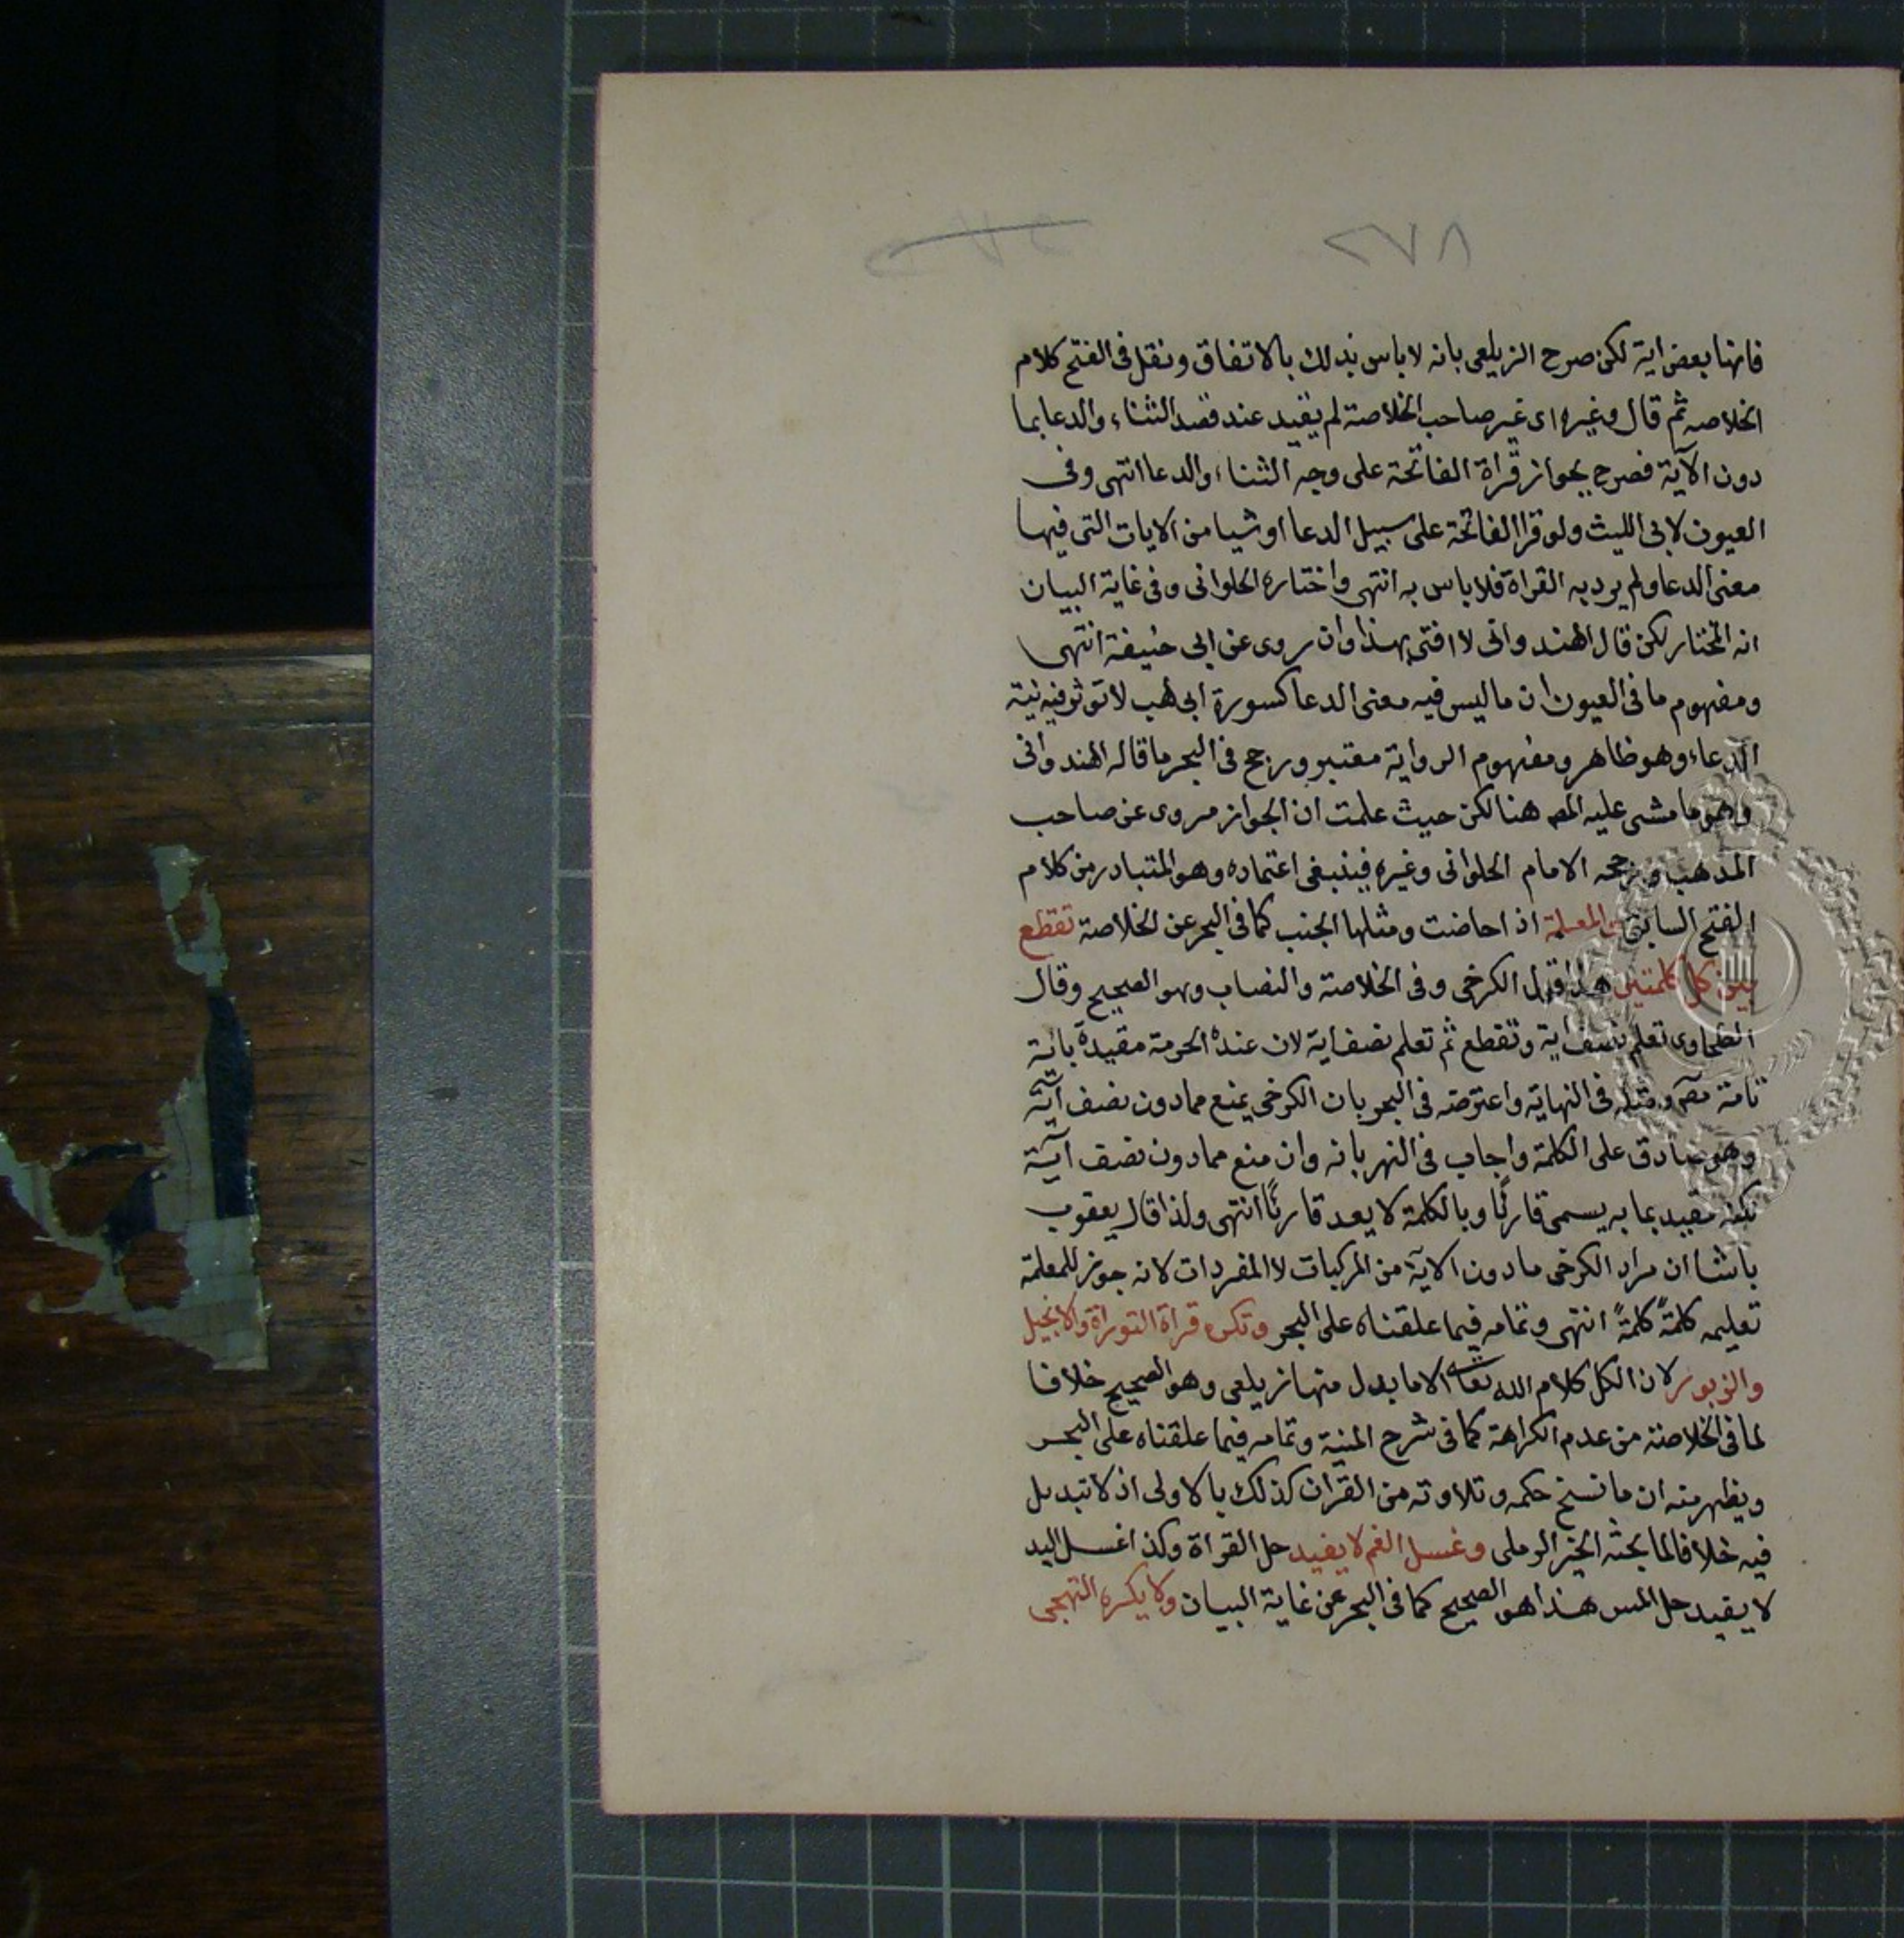 ٢٧٨
فانها بعض اية لكن صرح الزيلعى بانه لا باس بذلك بالاتفاق ونقل فى الفتح كلام
الخلاصه ثم قال وغيره اى غير صاحب الخلاصة لم يقيد عند قصد الثناء والدعا بما
دون الآية فصرح بجواز قراة الفاتحة على وجه الثناء والدعا انتهى وفى
العيون لابى الليث ولو قرا الفاتحة على سبيل الدعا او شيا من الايات التى فيها
معنى الدعا ولم يرد به القراة فلا باس به انتهى واختاره الحلوانى وفى غاية البيان
انه المختار لكن قال الهندوانى لا افتى بهذا وان روى عن ابى حنيفة انتهى
ومفهوم ما فى العيون ان ما ليس فيه معنى الدعا كسورة ابى لهب لا تؤثر فيه نية
الدعاء وهو ظاهر ومفهوم الرواية معتبر ورجح فى البحر ما قاله الهندوانى
وهو ما مشى عليه المص هنا لكن حيث علمت ان الجواز مروى عن صاحب
المذهب ورجحه الامام الحلوانى وغيره فينبغى اعتماده وهو المتبادر من كلام
الفتح السابق والمعلمة اذا حاضت ومثلها الجنب كما فى البحر عن الخلاصة تقطع
بين كل كلمتين هذا قول الكرخى وفى الخلاصة والنصاب وهو الصحيح وقال
الطحاوى تعلم نصف اية وتقطع ثم تعلم نصف اية لان عنده الحرمة مقيدة باية
تامة فى النهاية واعترضه فى البحر بان الكرخى يمنع مما دون نصف آية
وهو صادق على الكلمة واجاب فى النهر بانه وان منع مما دون نصف آية
لكنه مقيد بما به يسمى قارئًا وبالكلمة لا يعد قارئًا انتهى ولذا قال يعقوب
باشا ان مراد الكرخى ما دون الآية من المركبات لا المفردات لانه جوز للمعلمة
تعليمه كلمةً كلمةً انتهى وتمامه فيما علقناه على البحر وتكره قراة التوراة والانجيل
والزبور لان الكل كلام الله تعالى الا ما بدل منها زيلعى وهو الصحيح خلافا
لما فى الخلاصة من عدم الكراهة كما فى شرح المنية وتمامه فيما علقناه على البحر
ويظهر منه ان ما نسخ حكمه وتلاوته من القران كذلك بالاولى اذ لا تبديل
فيه خلافا لما بحثه الخير الرملى وغسل الفم لا يفيد حل القراة وكذا غسل اليد
لا يفيد حل المس هذا هو الصحيح كما فى البحر عن غاية البيان ولا يكره التهجى